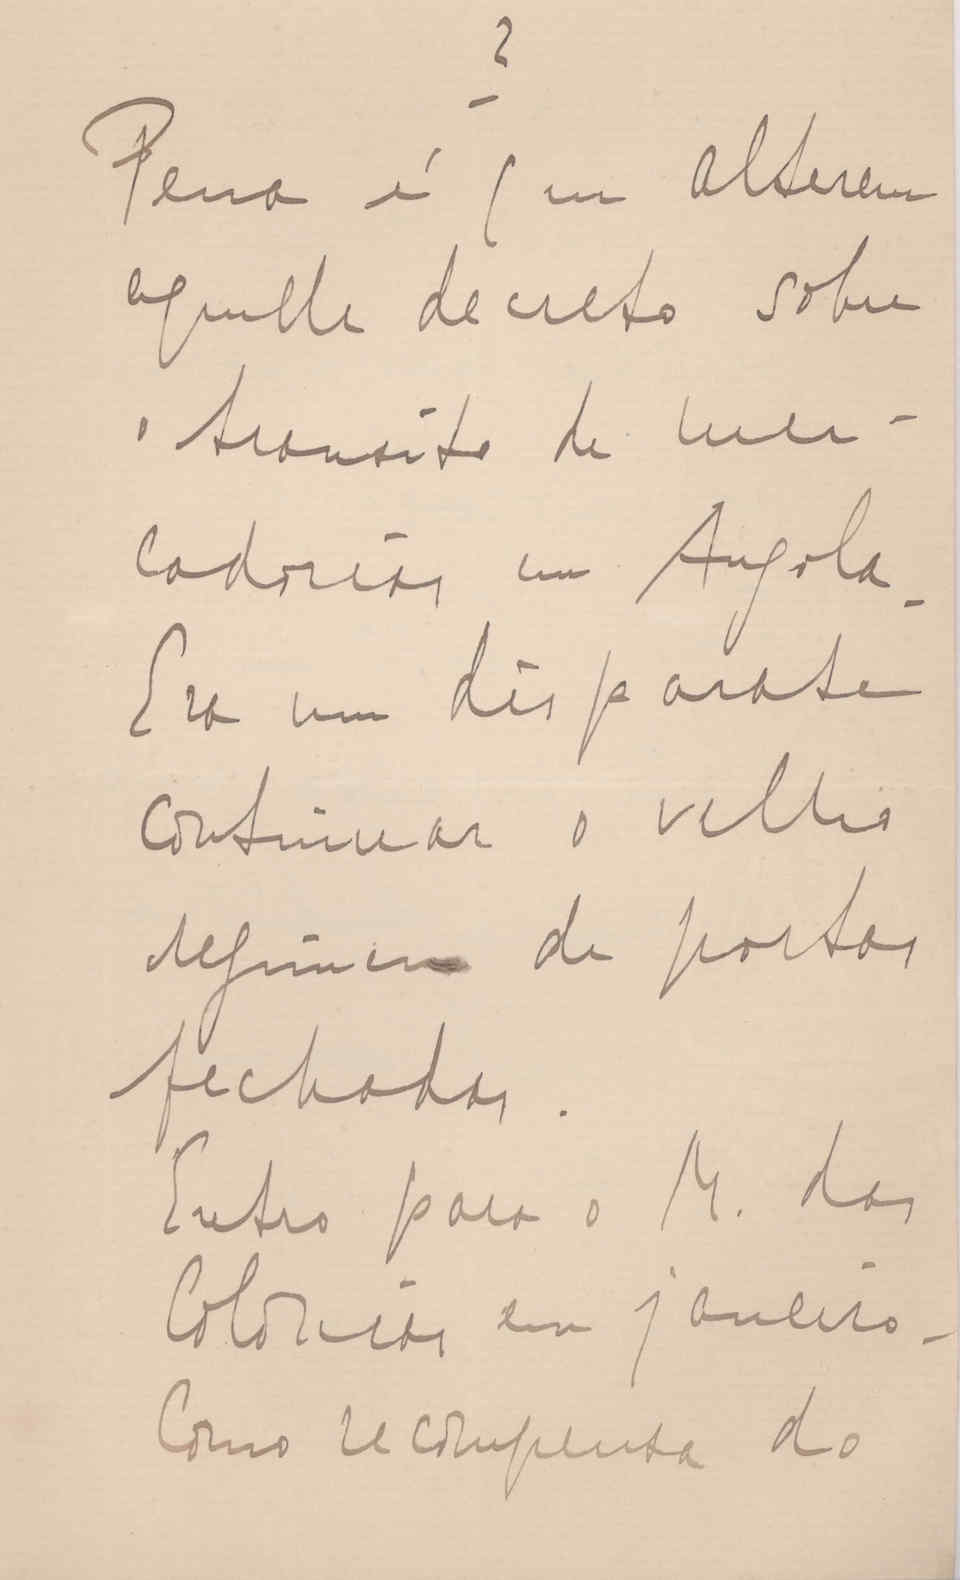 2
Pena é que alterem
aquelle decreto sobre
o transito de mer-
cadorias em Angola.
Era um disparate
continuar o velho
regimen de portas
fechadas.
Entro para o M. das
Colonias em janeiro.
Como recompensa do